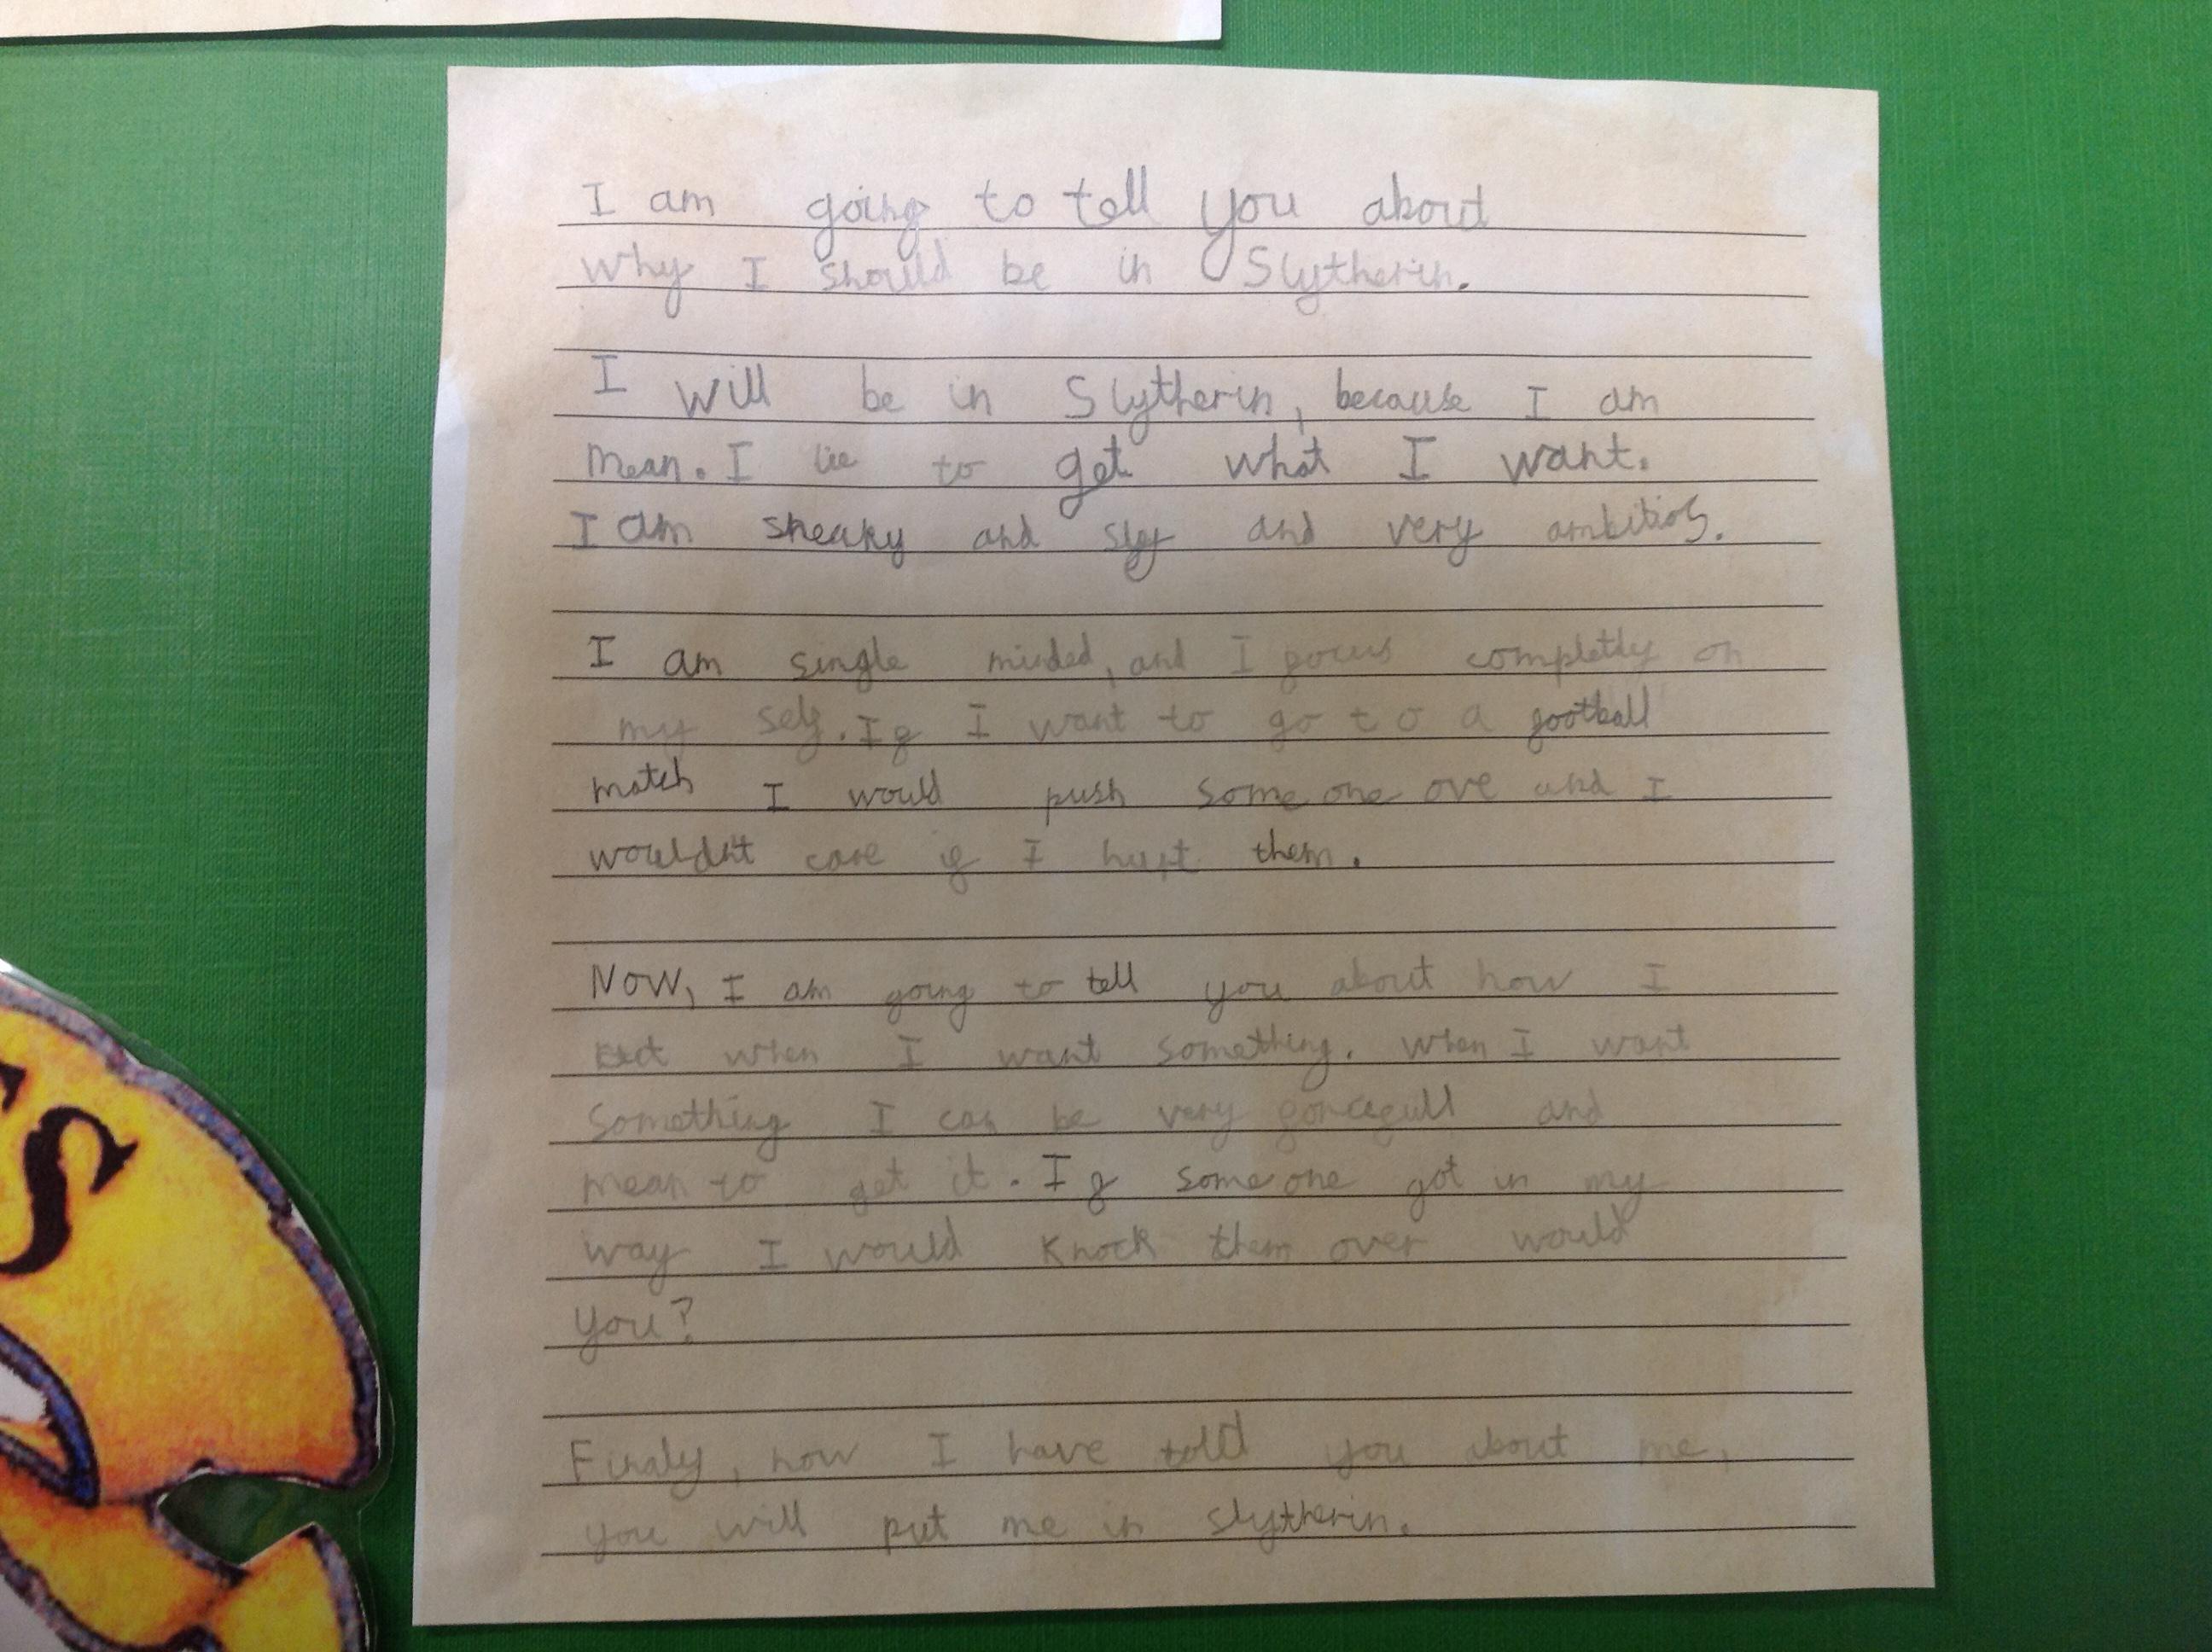 I am going to tell you about
why I should be in Slytherin.
I will be in Slytherin, because I am
mean. I lie to get what I want.
I am sneaky and sly and very ambitios.
I am single minded, and I focus completly on
my self. If I want to go to a football
match I would push some one ove and I
wouldn't care if I hurt them.
Now, I am going to tell you about how I
when I want something. when I want
Something I can be very forcefull and
mean to get it. If some one got in my
way I would knock them over would
you?
Finaly, now I have told you about me,
you will put me in slytherin.
S